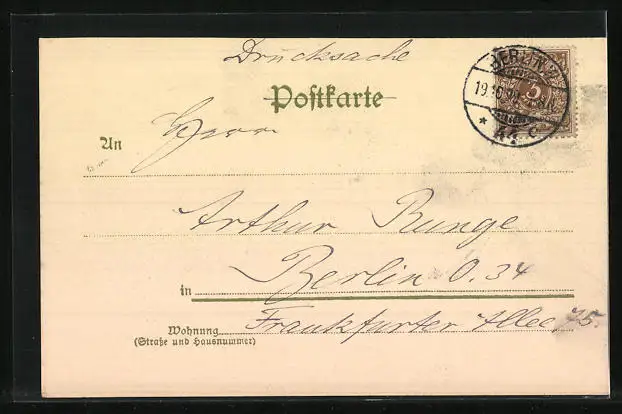 Drucksache
Postkarte
BERLIN
5
An Herrn
Arthur Runge
in Berlin O. 34
Wohnung Frankfurter Allee, 75.
(Straße und Hausnummer)